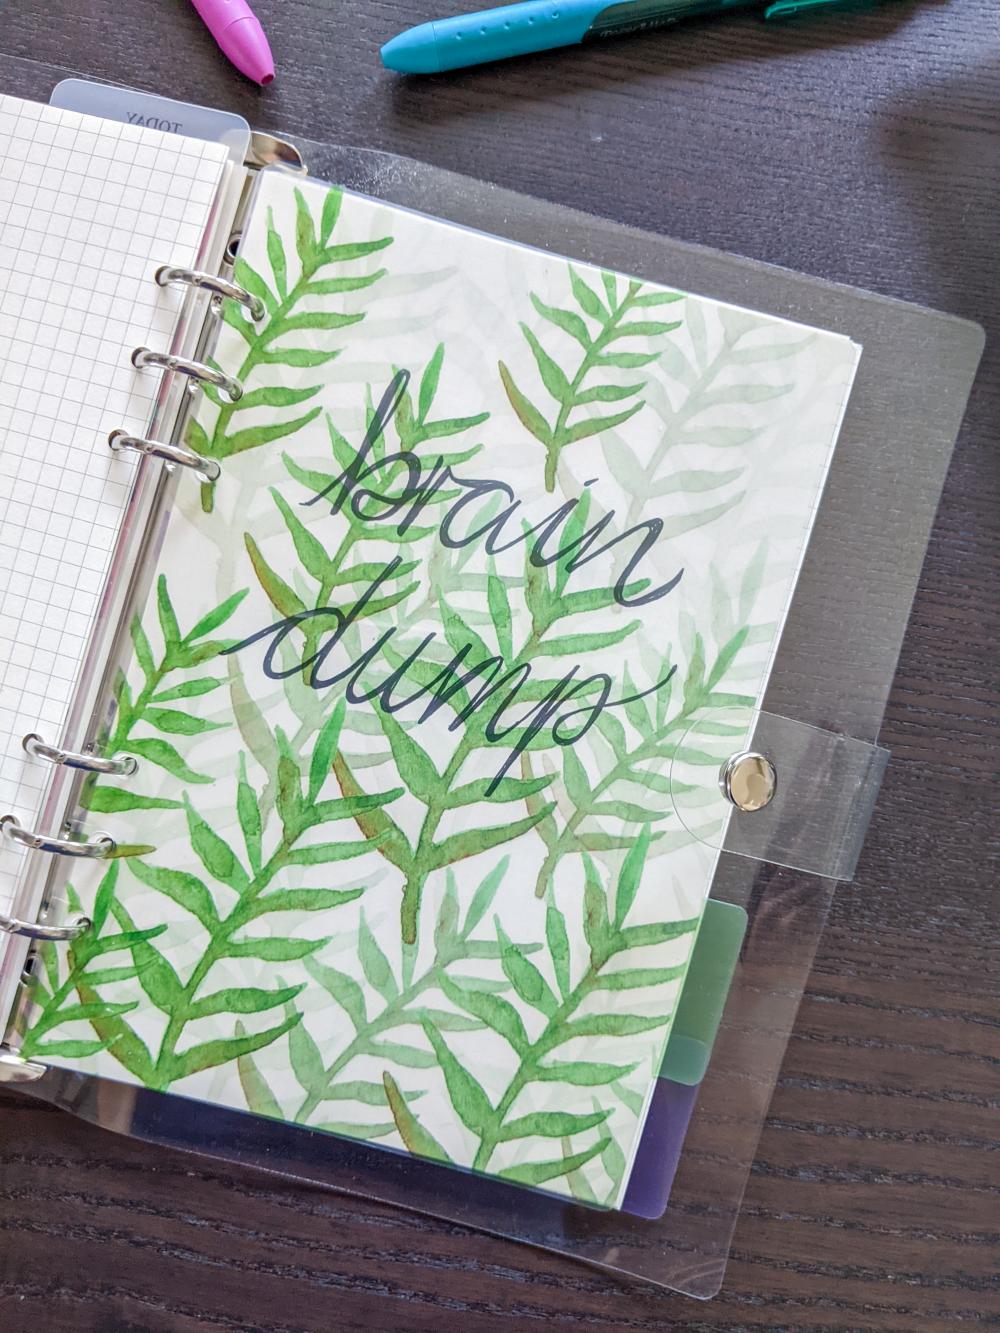 TODAY
brain
dump